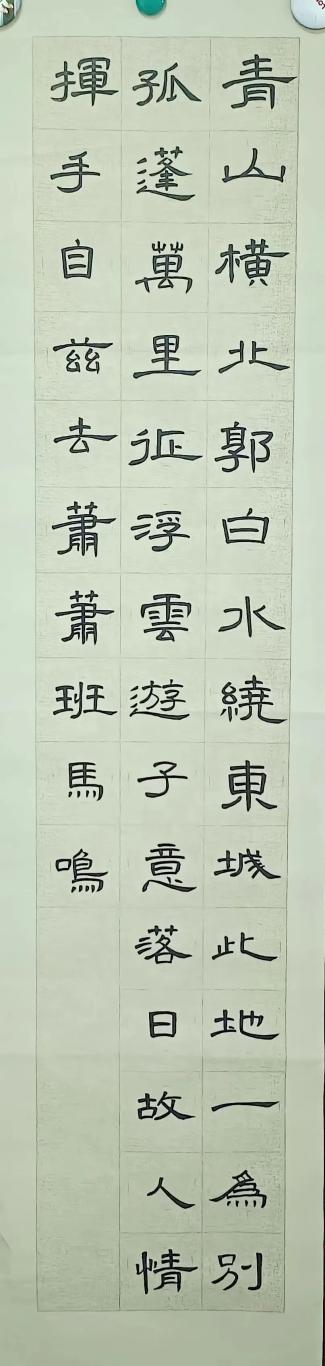 青山橫北郭白水繞東城此地一為別
孤蓬萬里征浮雲遊子意落日故人情
揮手自茲去蕭蕭班馬鳴